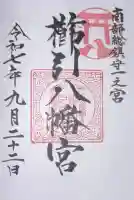 南部総鎮守一之宮
櫛引八幡宮
令和七年九月二十二日